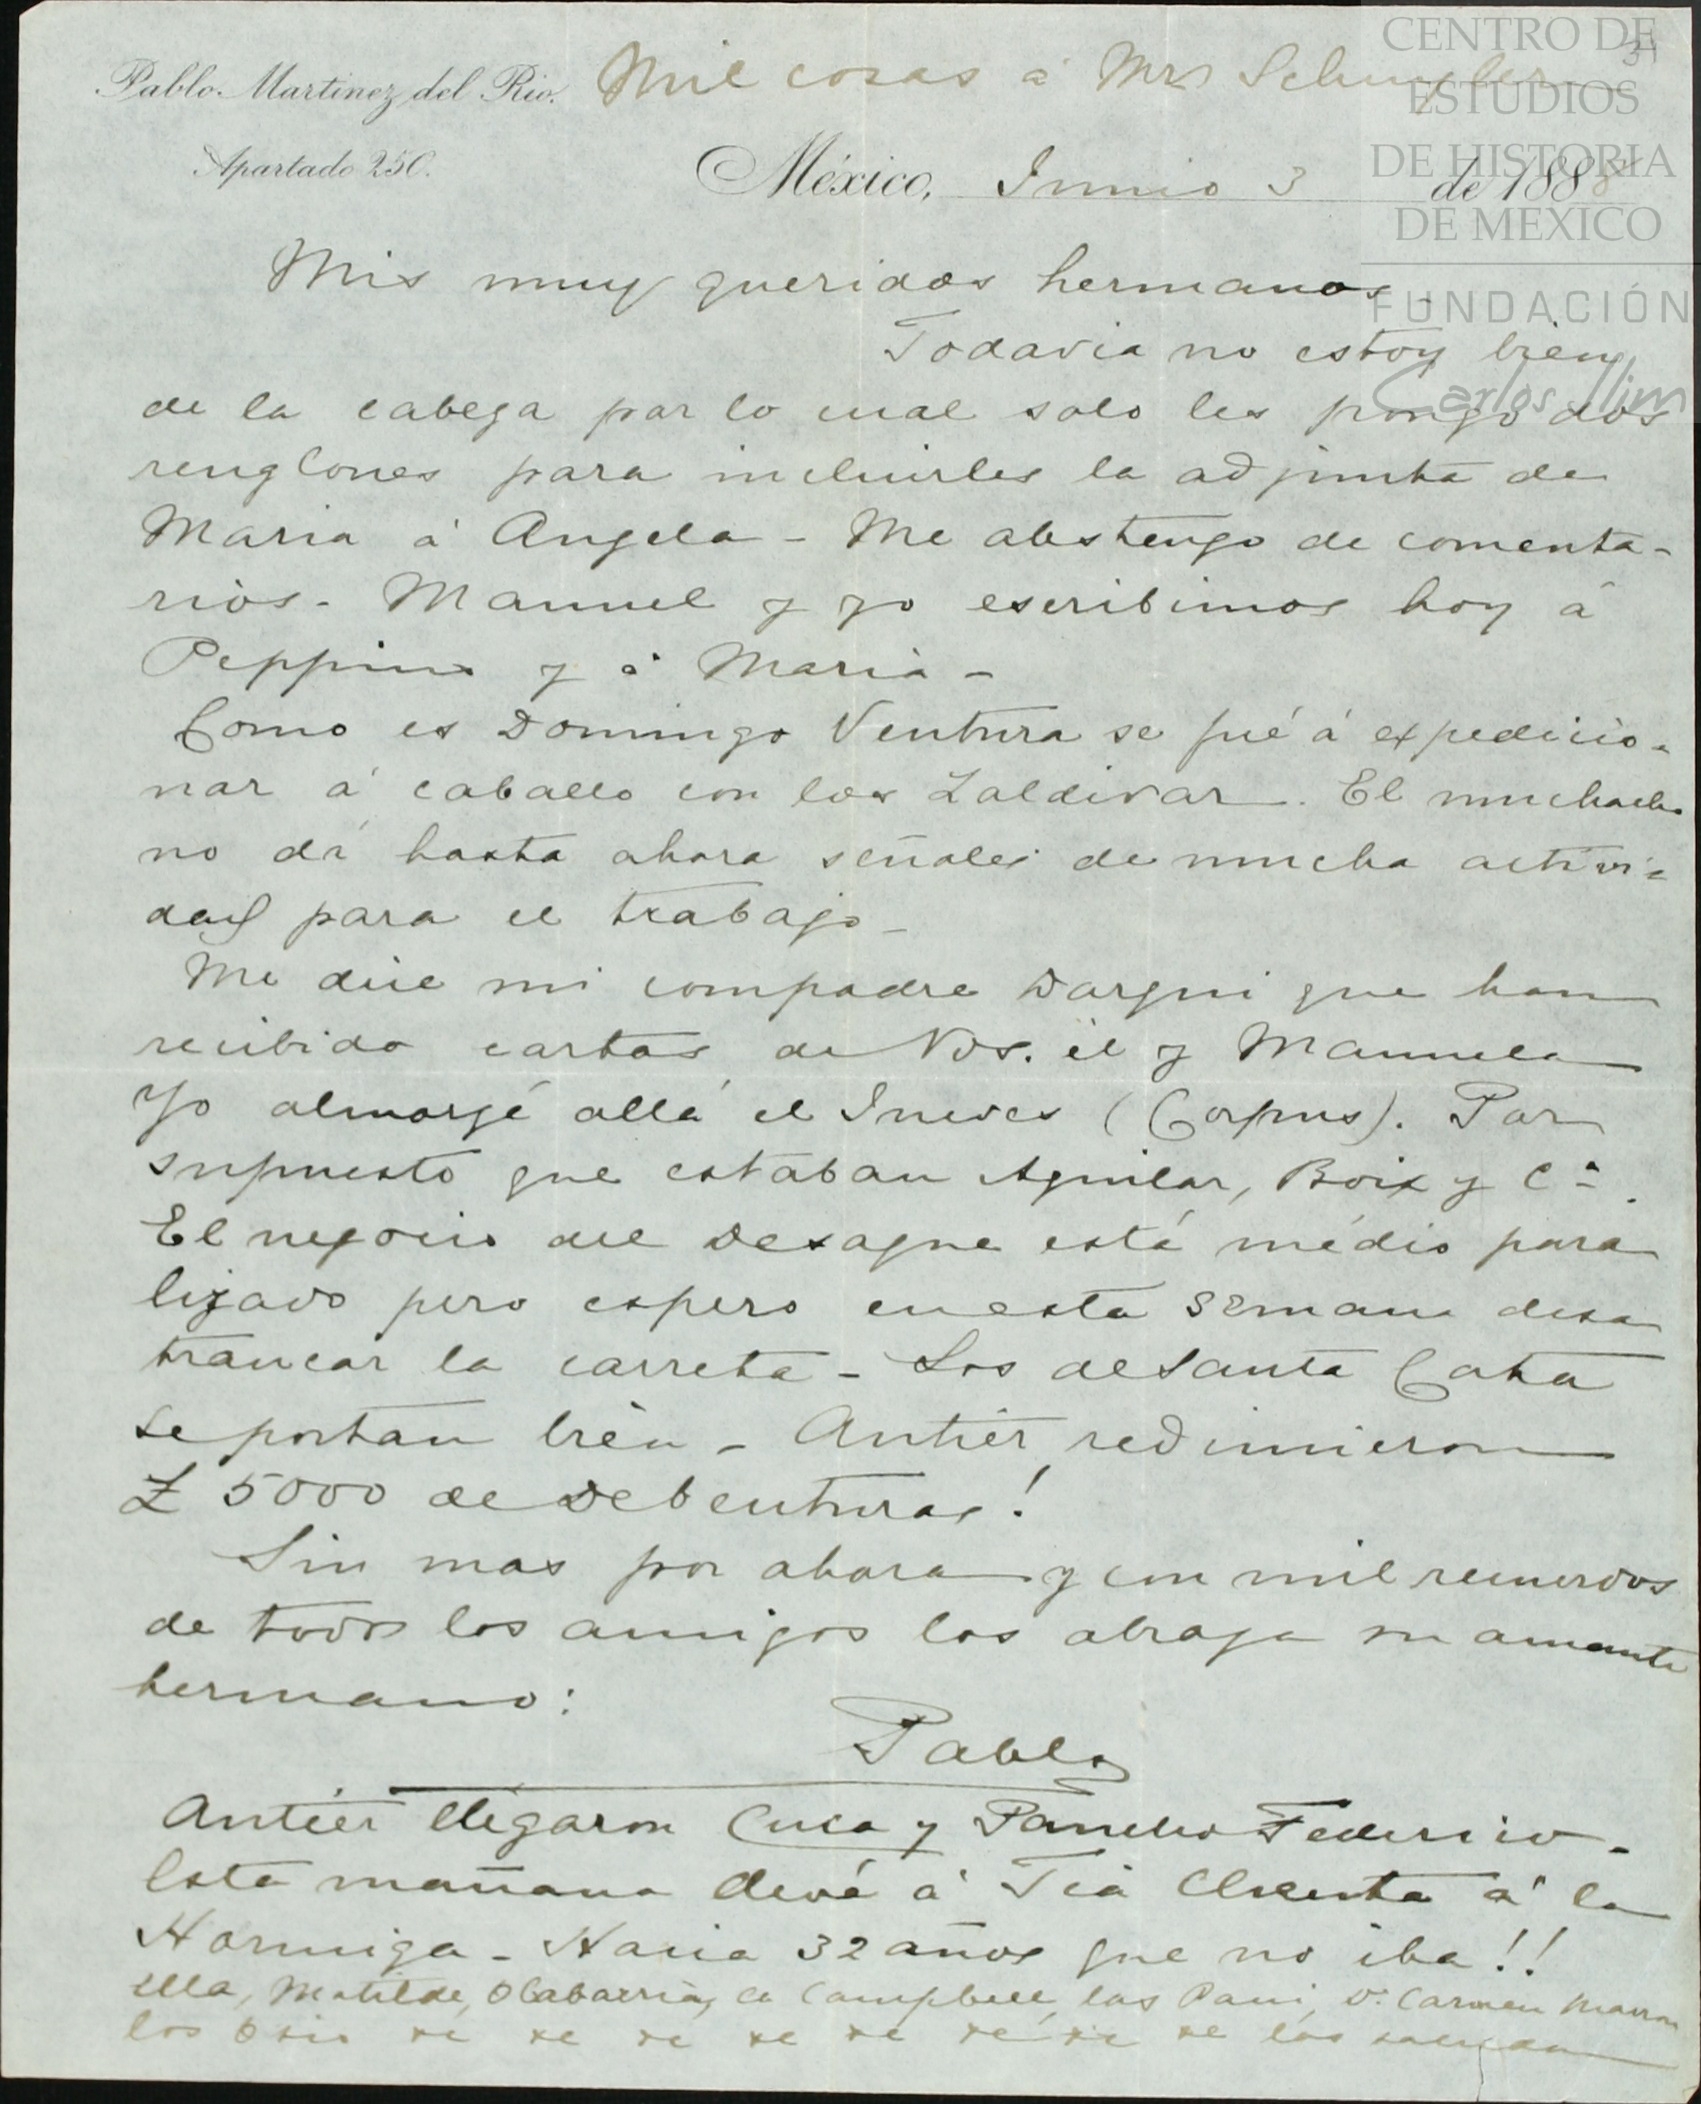 Pablo Martinez del Rio.
Apartado 250.
Mil cosas á Mrs Schuyler
31
CENTRO DE
ESTUDIOS
DE HISTORIA
DE MEXICO
FUNDACIÓN
Carlos Slim
México, Junio 3 de 1888
Mis muy queridos hermanos
Todavia no estoy bien
de la cabeza por lo cual solo les pongo dos
renglones para incluirles la adjunta de
Maria á Angela - Me abstengo de comenta-
rios - Manuel y yo escribimos hoy á
Peppino y á Maria -
Como es Domingo Ventura se fué á expedicio-
nar á caballo con los Zaldivar. El muchacho
no dá hasta ahora señales de mucha activi-
dad para el trabajo -
Me dice mi compadre Dargui que han
recibido cartas de Vds. él y Manuela
Yo almorzé allá el Jueves (Corpus). Por
supuesto que estaban Aguilar, Boix y Cª.
El negocio del Desague está médio para
lizado pero espero en esta semana desa
trancar la carreta - Los de Santa Cata
se portan bien - Antier redimieron
£ 5000 de Debenturas!
Sin mas por ahora y con mil recuerdos
de todos los amigos los abraza su amante
hermano:
Pablo
Antier llegaron Cuca y Pancho Federico -
Esta mañana llevé á Tia Clicenta á la
Hormiga - Hacia 32 años que no iba!!
ella, Matilde, Olabarria, la Campbell, las Pani, Da. Carmen
los Osio &c &c &c &c &c &c &c &c los saludan